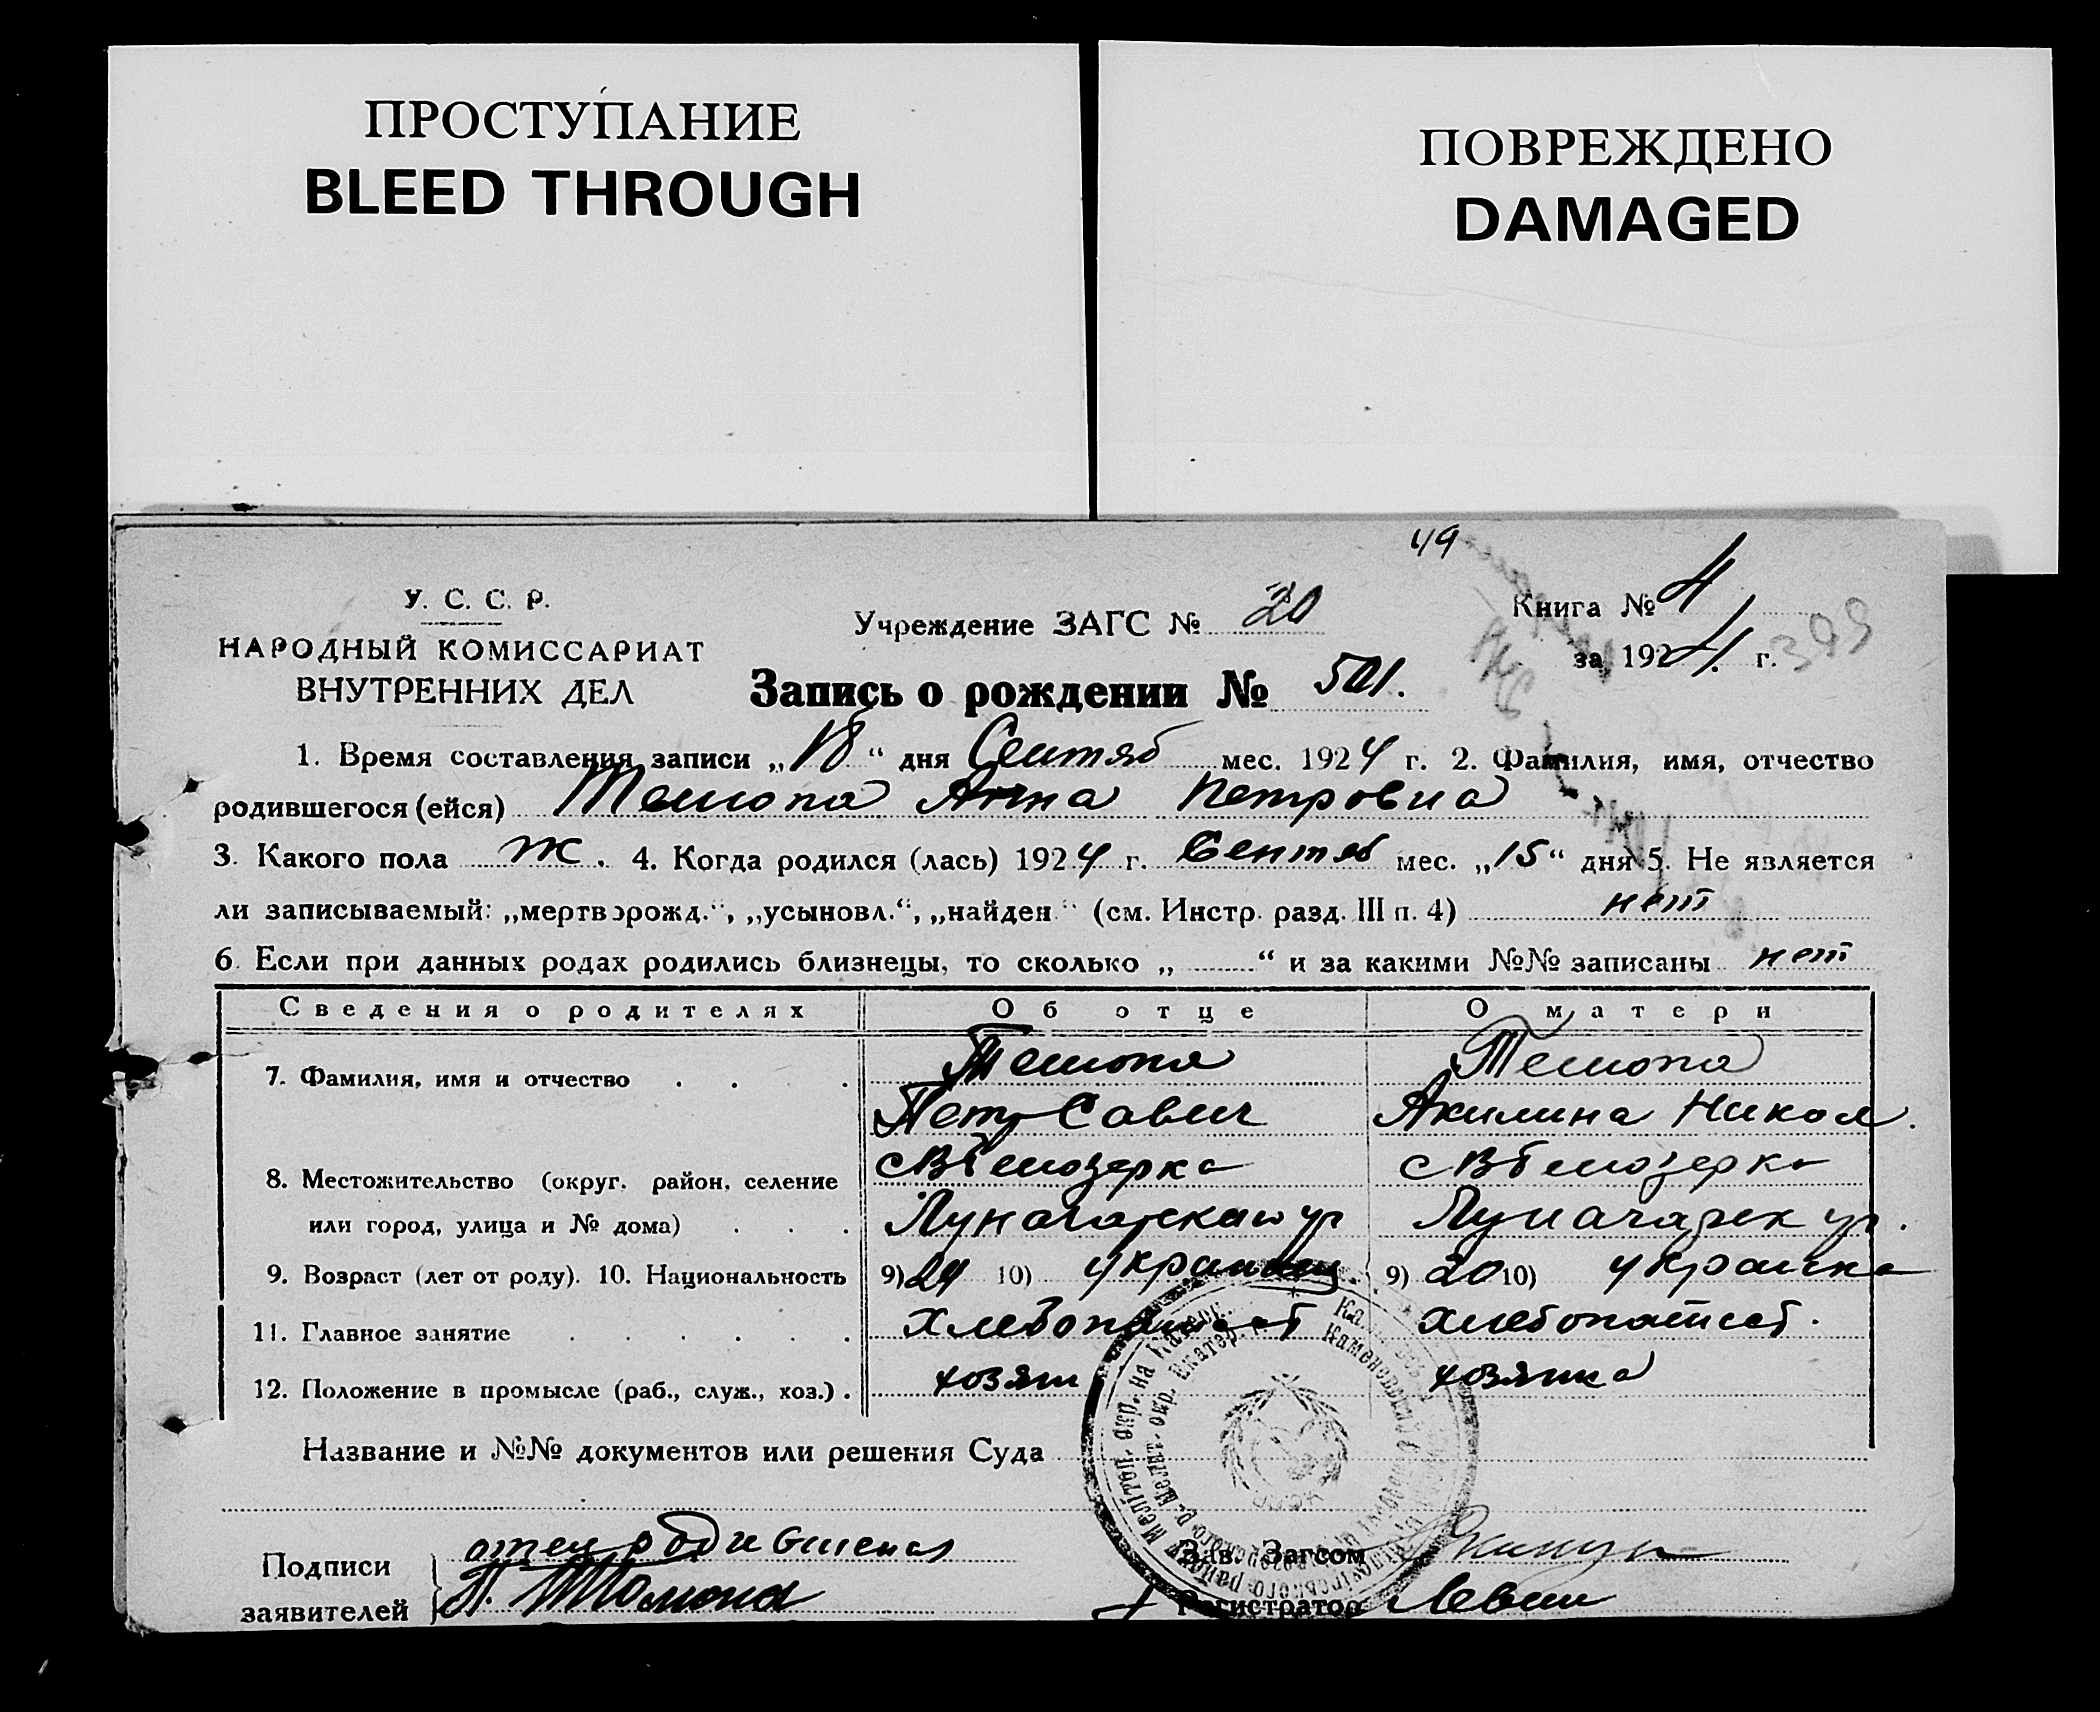 ПРОСТУПАНИЕ
BLEED THROUGH
ПОВРЕЖДЕНО
DAMAGED
49
У. С. С. Р.
НАРОДНЫЙ КОМИССАРИАТ
ВНУТРЕННИХ ДЕЛ
Учреждение ЗАГС № 20
Книга № 4
за 1924 г. 399
Запись о рождении № 501.
1. Время составления записи „18“ дня Сентяб мес. 1924 г. 2. Фамилия, имя, отчество
родившегося (ейся) Анна Петровна
3. Какого пола ж. 4. Когда родился (лась) 1924 г. Сентяб мес. „15“ дня 5. Не является
ли записываемый: „мертворожд.“, „усыновл.“, „найден“ (см. Инстр. разд. III п. 4) нет
6. Если при данных родах родились близнецы, то сколько „ “ и за какими №№ записаны нет
Сведения о родителях Об отце О матери
7. Фамилия, имя и отчество . . .
Петр Савич Акилина Никол.
8. Местожительство (округ. район, селение с В Белозерка с В Белозерка
или город, улица и № дома) . . . Луначарск ур.
9. Возраст (лет от роду). 10. Национальность 9) 24 10) украинец 9) 20 10) украинка
11. Главное занятие . . . . . . хлебопашест хлебопашест.
12. Положение в промысле (раб., служ., хоз.) . хозяин хозяйка
Название и №№ документов или решения Суда
Подписи
заявителей
отец родившейся
П.
Зав. Загсом
Регистратор Левин